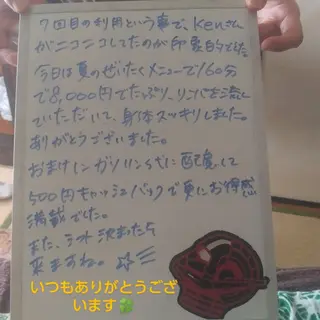 7回目の利用という事で、Kenさん
がニコニコしてたのが印象的でした
今日は夏のぜいたくメニューで160分
で8,000円でたっぷり、リンパをご流し
ていただいて、身体スッキリしました。
ありがとうございました。
おまけにガソリン代に配慮して
500円キャッシュバックで更にお得感
満載でした。
また、シフト決まったら
来ますね。
いつもありがとうござ
います